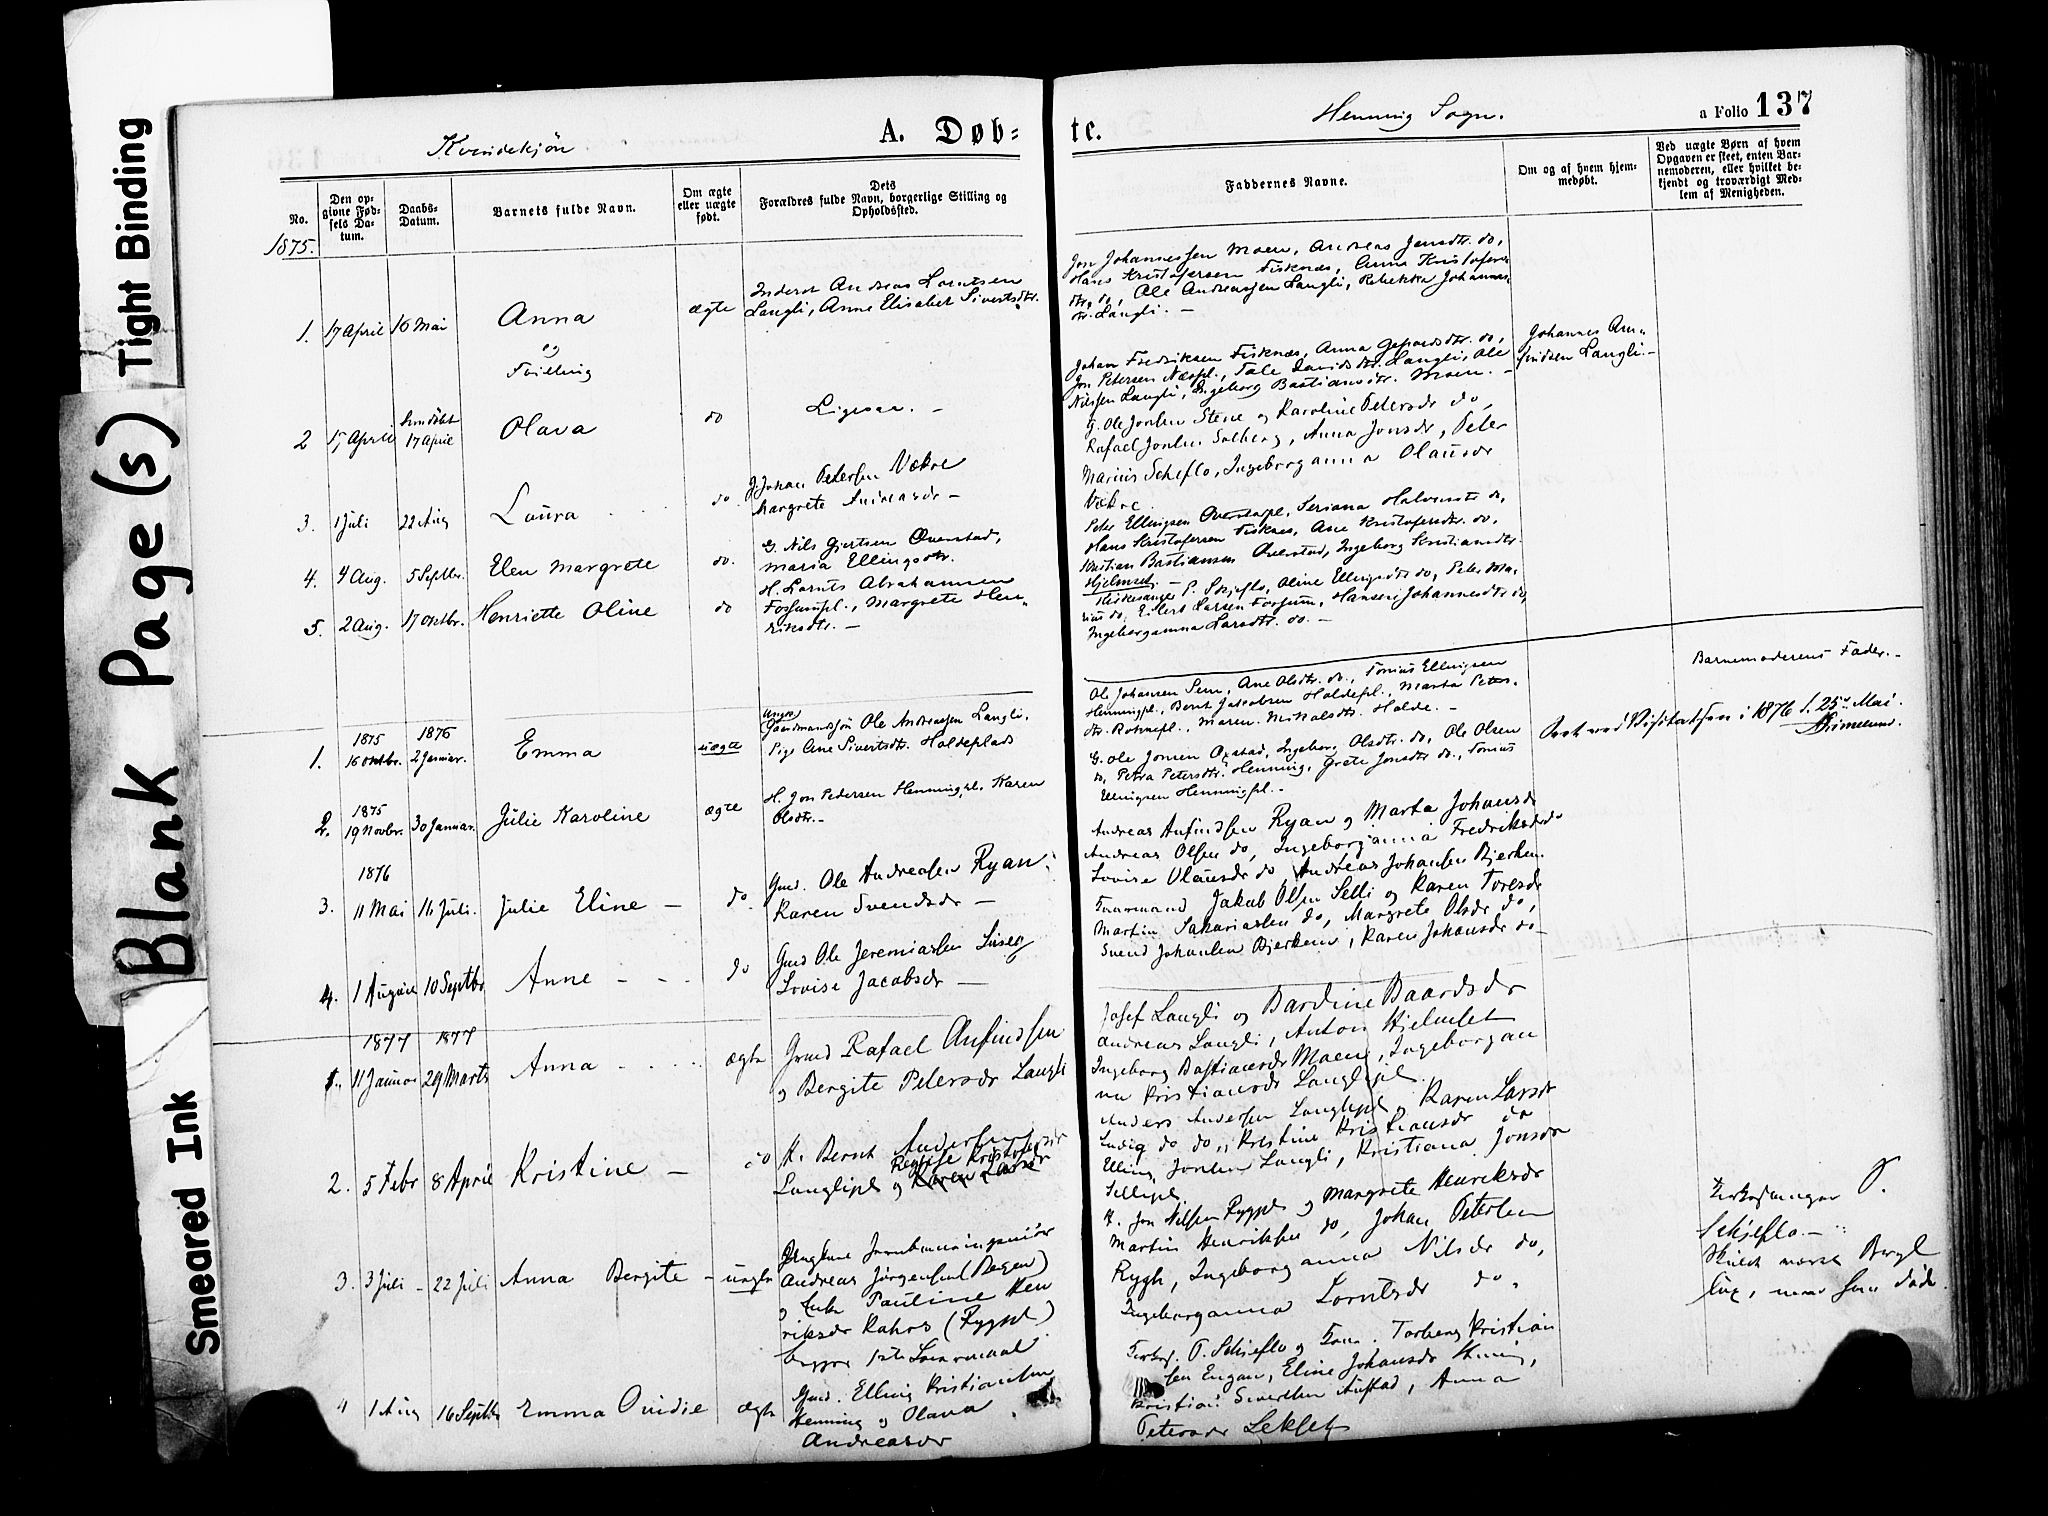 Tight Binding
Blank Page(s)
Smeared Ink
Kvindekjön
A. Døb=
te.
Henning Sogn.
a Folio 137
No.
Den op-
givne Fød-
sels Da-
tum.
Daabs-
Datum.
Barnets fulde Navn.
Om ægte
eller uægte
født.
Dets
Forældres fulde Navn, borgerlige Stilling og
Opholdssted.
Faddernes Navne.
Om og af hvem hjem-
medøbt.
Ved uægte Børn af hvem
Opgaven er skeet, enten Bar-
nemoderen, eller hvilket be-
kjendt og troværdigt Med-
lem af Menigheden.
1875.
1. 17 April 16 Mai Anna ægte
Inderst Andreas Lorntsen
Langli, Anne Elisabet Sivertsdtr.
Jon Johannessen Moen, Andreas Jensdtr. do,
Hans Kristofersen Fisknes, Anna Kristofers
dtr. do, Ole Andreassen Langli, Rebekka Johannes
dtr. Langli. —
og
Tvilling
2 17 April hmdöbt 17 April Olava do
Ligesaa. —
Johan Fredriksen Fisknes, Anna dtr. do,
Jon Petersen Næspl., Tale Davidsdtr. Langli, Ole
Nilssen Langli, Ingeborg Bastiansdtr. Moen. —
Johannes
Langli. —
3. 1 Juli 22 Aug Laura do
Johan Petersen Vekre
Margrete Andreasdr —
G. Ole Jonsen Stene og Karoline Petersdr do,
Rafael Jonsen Solberg, Anna Jonsdr, Peter
Marius Scheflo, Ingeborganna Olausdr
Vekre
4. 4 Aug. 5 Septbr. Elen Margrete do.
G. Nils Gjertsen Överstad,
Maria Ellingsdtr.
Peter Ellingsen Overstadpl, Seriana Halvorsdtr do,
Hans Kristofersen Fisknes, Ane Kristofersdtr. do.
Kristian Bastiansen Överstad, Ingeborg Kristiansdtr.
Hjelmset. —
5. 2 Aug. 17 Oktbr. Henriette Oline do
H. Lornts Abrahamsen
Fossumpl., Margrete Hen-
riksdtr. —
Kirkesanger P. Skjeflo, Oline Ellingsdtr do, Peter Ma-
rius do, Eilert Larsen Fossum, Hansine Johannesdtr do,
Ingeborganna Larsdtr. do. —
1. 1875 16 Oktbr. 1876 2 Januar. Emma uægte
Ungk
Gaardmandssøn Ole Andreassen Langli,
Pige Ane Sivertsdtr. Haldeplads
Ole Johansen Sem, Ane Olsdtr. do., Tonius Ellingsen
Henningpl., Bernt Jakobsen Haldepl., Marta Peters-
dtr. , Maren Mikalsdtr. Halde. —
Barnemoderens Fader. —
2. 1875 19 Novbr. 30 Januar. Julie Karoline ægte
H. Jon Pedersen Henningpl, Karen
Olsdtr. —
G. Ole Jonsen Ogstad, Ingeborg Olsdtr. do, Ole Olsen
do, Petra Petersdtr. Henning, Grete Jonsdtr do, Tonius
Ellingsen Henningpl. —
ved Visitatsen i 1876 d. 25de Mai.
3. 1876 11 Mai 16 Juli. Julie Eline — do
Gmd. Ole Andreasen Ryan
Karen Svendsdr —
Andreas Anfindsen Ryan og Marta Johansdr
Andreas Olsen do, Ingeborganna Fredriksdr do
Lovise Olausdr do, Andreas Johansen Bjerkem
4. 1 August 10 Septbr Anne — do
Gmd Ole Jeremiassen
Lovise Jacobsdr —
Gaarmand Jakob Olsen Selli og Karen Toresdr
Martin Sakariasen do, Margrete Olsdr do,
Svend Johansen Bjerkem, Karen Johansdr do —
1. 1877 11 Januar 1877 29 Marts Anna ægte
Gmd Rafael Anfindsen
og Bergite Petersdr Langli
Josef Langli og Bardine Baardsdr
Andreas Langli, Anton Hjelmset
Ingeborg Bastiansdr Moen, Ingeborgan
na Kristiansdr Langlipl.
2. 5 Febr 8 April Kristine — do
H. Bernt Andersen
Langlipl og Karen Larsdr
Anders Andersen Langlipl og Karen Larsdr
Ludvig do do, Kristine Kristiansdr do
Elling Jonsen Langli, Kristiana Jonsdr
Sellipl
3. 3 Juli — 22 Juli Anna Bergite — uægte
Ungkarl Jernbaneingeniør
Andreas Jørgensen (Bergen)
og Enke Pauline Hen
riksdr Rahrs (Rygpl)
begges 1ste Leiermaal
H. Jon Nilsen Rygpl og Margrete Henriksdr
Martin Henriksen do, Johan Petersen
Rygh, Ingeborganna Nilsdr do,
Ingeborganna Lorntsdr do.
Kirkesanger P.
Schjeflo. —
4 1 Aug 16 Septbr Emma Ovidie ægte
Gmd. Elling Kristiansen
Henning og Olava
Andreasdr
Kirkes. P. Schjeflo og Torberg Kristian
sen Engan, Eline Johansdr
Kristian Sivertsen , Anna
Petersdr Lekset